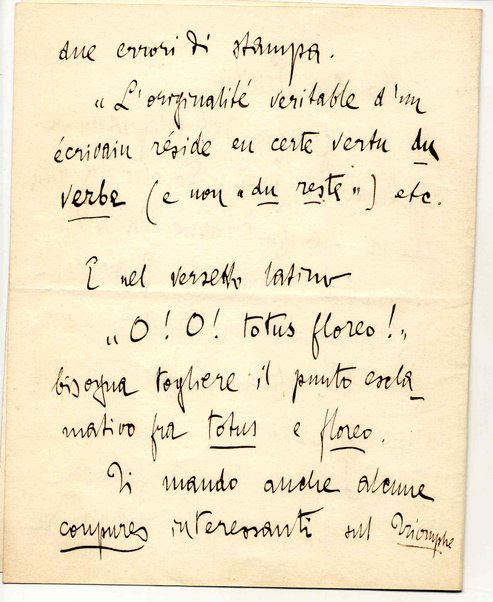 due errori di stampa.
„ L'originalité veritable d'un
écrivain réside en certe vertu du
verbe (e non „ du reste „) etc.
E nel versetto latino
„ O! O! totus floreo! „
bisogna togliere il punto escla-
mativo fra totus e floreo.
Ti mando anche alcune
coupures interessanti sul Triomphe